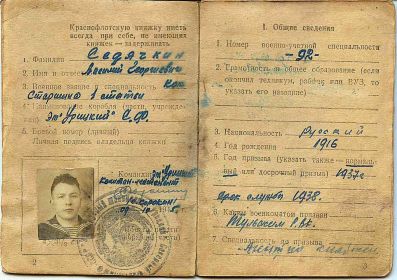 Краснофлотскую книжку иметь
всегда при себе, не имеющих
книжек — задерживать
1. Фамилия Седячкин
2. Имя и отчество Василий Георгиевич
3. Военное звание и специальность кок
Старшина 1 статьи
4. Наименование корабля (части, учреждения)
Эм "Урицкий" СФ.
5. Боевой номер (личный)
Личная подпись владельца книжки
Командир Эм "Урицкий"
Капитан-лейтенант
2
I. Общие сведения
1. Номер военно-учетной специальности
-92-
2. Грамотность и общее образование (если
окончил техникум, рабфак или ВУЗ, то
указать его название)
3. Национальность Русский
4. Год рождения 1916
5. Год призыва (указать также — нормаль-
ный или досрочный призыв) 1937г.
срок службы 1938.
6. Каким военкоматом призван
Тульским РВК.
7. Специальность до призыва